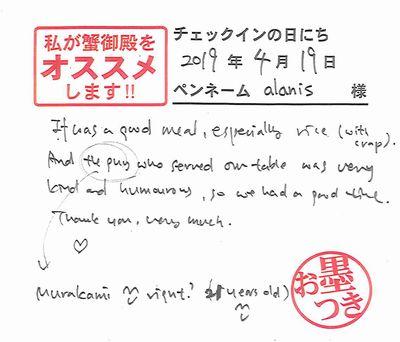 私が蟹御殿を
オススメ
します!!
チェックインの日にち
2019年4月19日
ペンネーム alanis 様
It was a good meal, especially rice (with crap).
And the guy who served our table was very
kind and humourous, so we had a good time.
Thank you, very much.
♡
Murakami right? (21 years old)
お墨つき